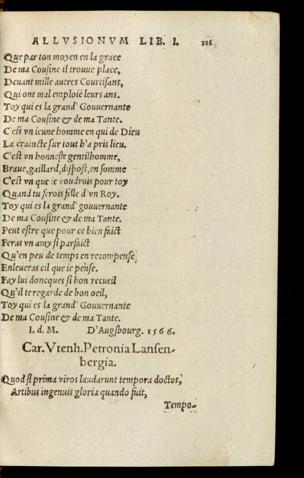 ALLVSIONVM LIB. I.
Que par ton moyen en la grace
De ma Cousine il trouue place,
Deuant mille autres Courtisans,
Qui ont mal emploié leurs ans.
Toy qui es la grand' Gouuernante
De ma Cousine & de ma Tante.
C'est vn ieune homme en qui de Dieu
La craincte sur tout h'a pris lieu.
C'est vn honneste gentilhomme,
Braue, gaillard, dispost, en somme
C'est vn que ie voudrois pour toy
Quand tu serois fille d'vn Roy.
Toy qui es la grand' gouuernante
De ma Cousine & de ma Tante.
Peut estre que pour ce bien faict
Feras vn amy si parfaict
Qu'en peu de temps en recompense,
Enleueras cil que ie pense.
Fay luy doncques si bon recueil
Qu'il te regarde de bon oeil,
Toy qui es la grand' Gouuernante
De ma Cousine & de ma Tante.
I. d. M. D'Augsbourg. 1566.
Car. Vtenh. Petronia Lansen-
bergia.
Quod si prima viros laudarunt tempora doctos,
Artibus ingenuis gloria quando fuit,
Tempo-